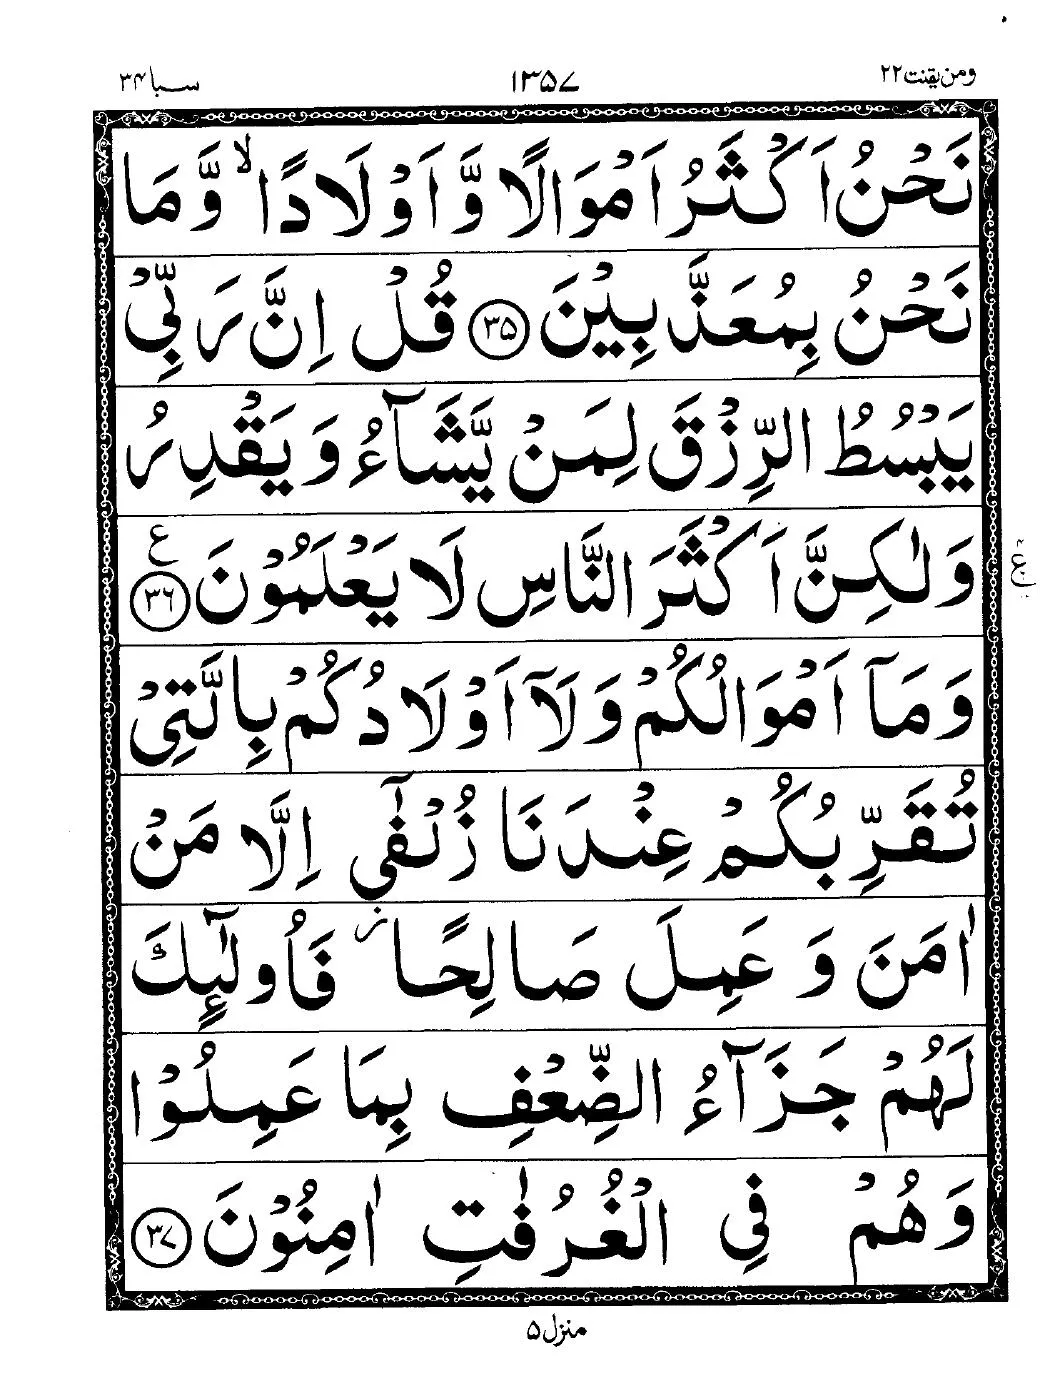 ومن یقنت ۲۲ ۱۳۵۷ سبا ۳۴
نَحْنُ اَكْثَرُ اَمْوَالًا وَّ اَوْلَادًا ۙ وَّ مَا
نَحْنُ بِمُعَذَّبِیْنَ ﴿۳۵﴾ قُلْ اِنَّ رَبِّیْ
یَبْسُطُ الرِّزْقَ لِمَنْ یَّشَآءُ وَ یَقْدِرُ
وَلٰكِنَّ اَكْثَرَ النَّاسِ لَا یَعْلَمُوْنَ ﴿۳۶﴾ ع
وَ مَاۤ اَمْوَالُكُمْ وَلَاۤ اَوْلَادُكُمْ بِالَّتِیْ
تُقَرِّبُكُمْ عِنْدَنَا زُلْفٰۤی اِلَّا مَنْ
اٰمَنَ وَ عَمِلَ صَالِحًا ؗ فَاُولٰٓىِٕكَ
لَهُمْ جَزَآءُ الضِّعْفِ بِمَا عَمِلُوْا
وَهُمْ فِی الْغُرُفٰتِ اٰمِنُوْنَ ﴿۳۷﴾
منزل ۵